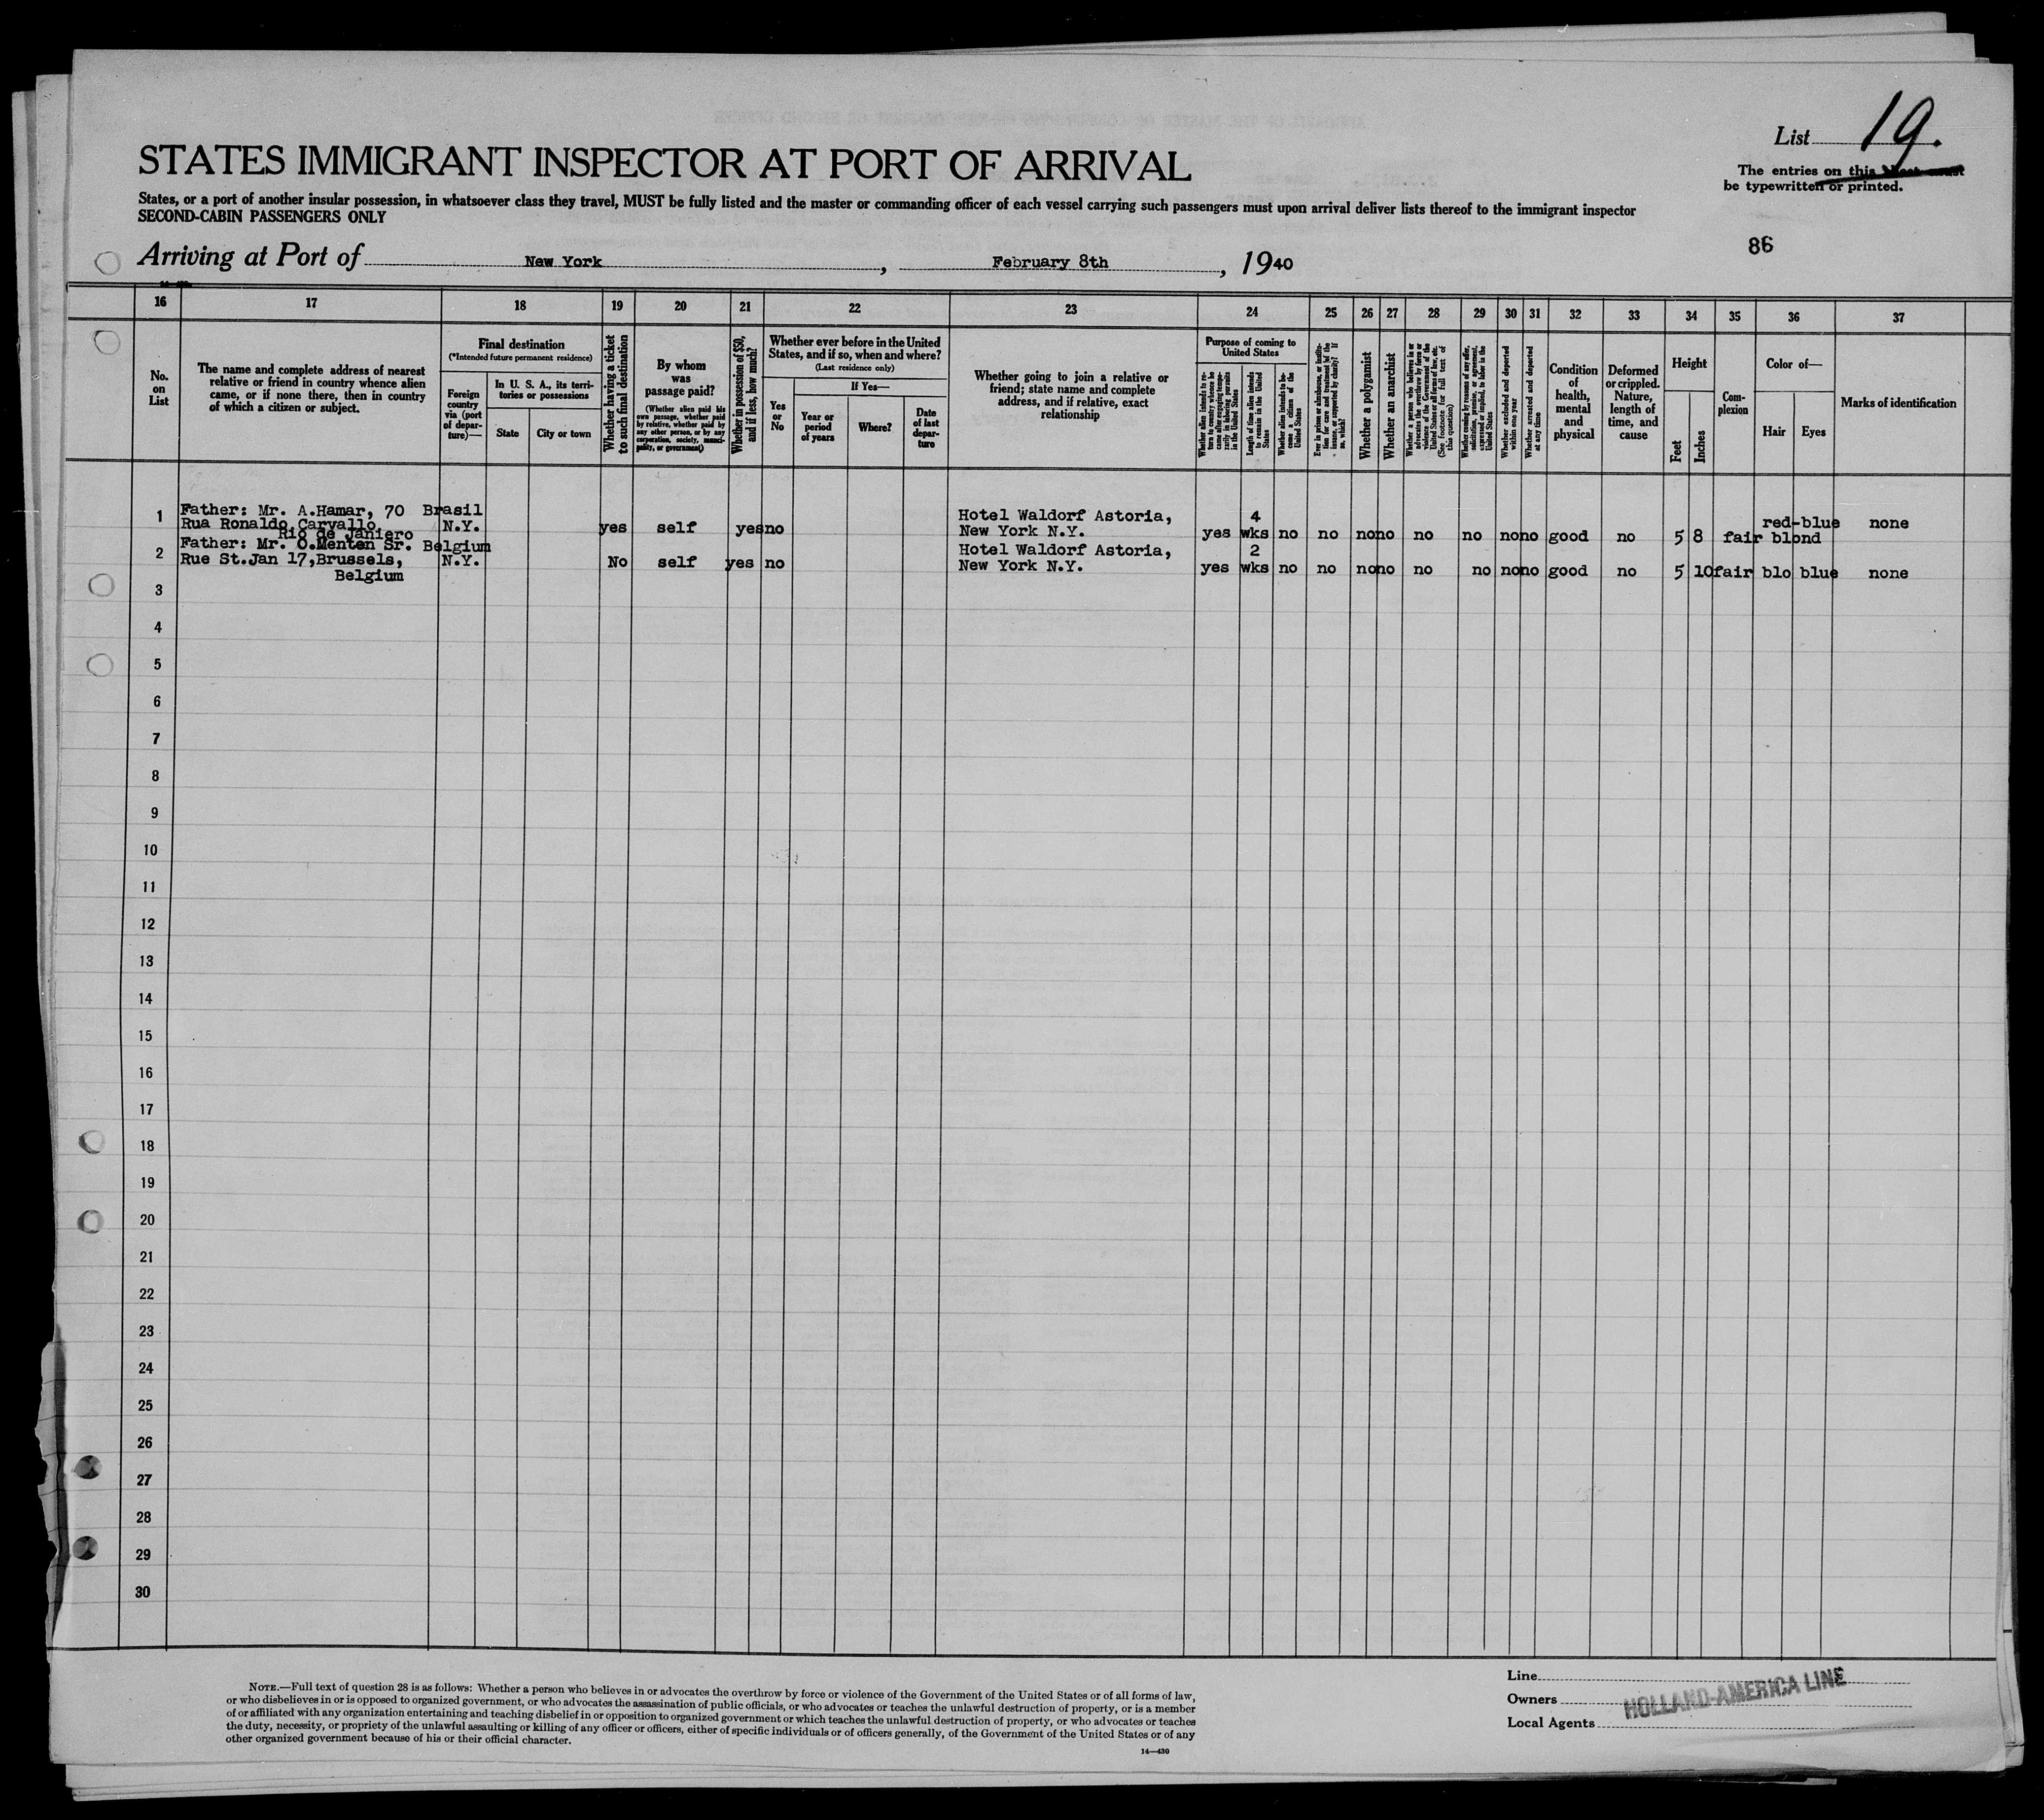 List 19.
The entries on this sheet must
be typewritten or printed.
STATES IMMIGRANT INSPECTOR AT PORT OF ARRIVAL
States, or a port of another insular possession, in whatsoever class they travel, MUST be fully listed and the master or commanding officer of each vessel carrying such passengers must upon arrival deliver lists thereof to the immigrant inspector
SECOND-CABIN PASSENGERS ONLY
86
Arriving at Port of New York, February 8th, 1940
16 17 18 19 20 21 22 23 24 25 26 27 28 29 30 31 32 33 34 35 36 37
No. on List
The name and complete address of nearest
relative or friend in country whence alien
came, or if none there, then in country
of which a citizen or subject.
Final destination
(*Intended future permanent residence)
Foreign country via (port of departure)—
In U. S. A., its territories or possessions
State
City or town
Whether having a ticket to such final destination
By whom was passage paid?
(Whether alien paid his own passage, whether paid by relative, whether paid by any other person, or by any corporation, society, municipality, or government)
Whether in possession of $50, and if less, how much?
Whether ever before in the United States, and if so, when and where?
(Last residence only)
Yes or No
If Yes—
Year or period of years
Where?
Date of last departure
Whether going to join a relative or
friend; state name and complete
address, and if relative, exact
relationship
Purpose of coming to United States
Whether alien intends to return to country whence he came after engaging temporarily in laboring pursuits in the United States
Length of time alien intends to remain in the United States
Whether alien intends to become a citizen of the United States
Ever in prison or almshouse, or institution for care and treatment of the insane, or supported by charity? If so, which?
Whether a polygamist
Whether an anarchist
Whether a person who believes in or advocates the overthrow by force or violence of the Government of the United States or all forms of law, etc. (See footnote for full text of this question)
Whether coming by reasons of any offer, solicitation, promise, or agreement, expressed or implied, to labor in the United States
Whether excluded and deported within one year
Whether arrested and deported at any time
Condition of health, mental and physical
Deformed or crippled. Nature, length of time, and cause
Height
Feet
Inches
Complexion
Color of—
Hair
Eyes
Marks of identification
1 Father: Mr. A.Hamar, 70 Brasil
Rua Ronaldo Carvallo, N.Y. yes self yes no
Rio de Janiero
Hotel Waldorf Astoria,
New York N.Y. yes 4 wks no no no no no no no no good no 5 8 fair red-blond blue none
2 Father: Mr. O.Menten Sr. Belgium
Rue St.Jan 17,Brussels, N.Y. No self yes no
Belgium
Hotel Waldorf Astoria,
New York N.Y. yes 2 wks no no no no no no no no good no 5 10 fair blo blue none
3
4
5
6
7
8
9
10
11
12
13
14
15
16
17
18
19
20
21
22
23
24
25
26
27
28
29
30
NOTE.—Full text of question 28 is as follows: Whether a person who believes in or advocates the overthrow by force or violence of the Government of the United States or of all forms of law,
or who disbelieves in or is opposed to organized government, or who advocates the assassination of public officials, or who advocates or teaches the unlawful destruction of property, or is a member
of or affiliated with any organization entertaining and teaching disbelief in or opposition to organized government or which teaches the unlawful destruction of property, or who advocates or teaches
the duty, necessity, or propriety of the unlawful assaulting or killing of any officer or officers, either of specific individuals or of officers generally, of the Government of the United States or of any
other organized government because of his or their official character.
14—430
Line
Owners
Local Agents
HOLLAND-AMERICA LINE